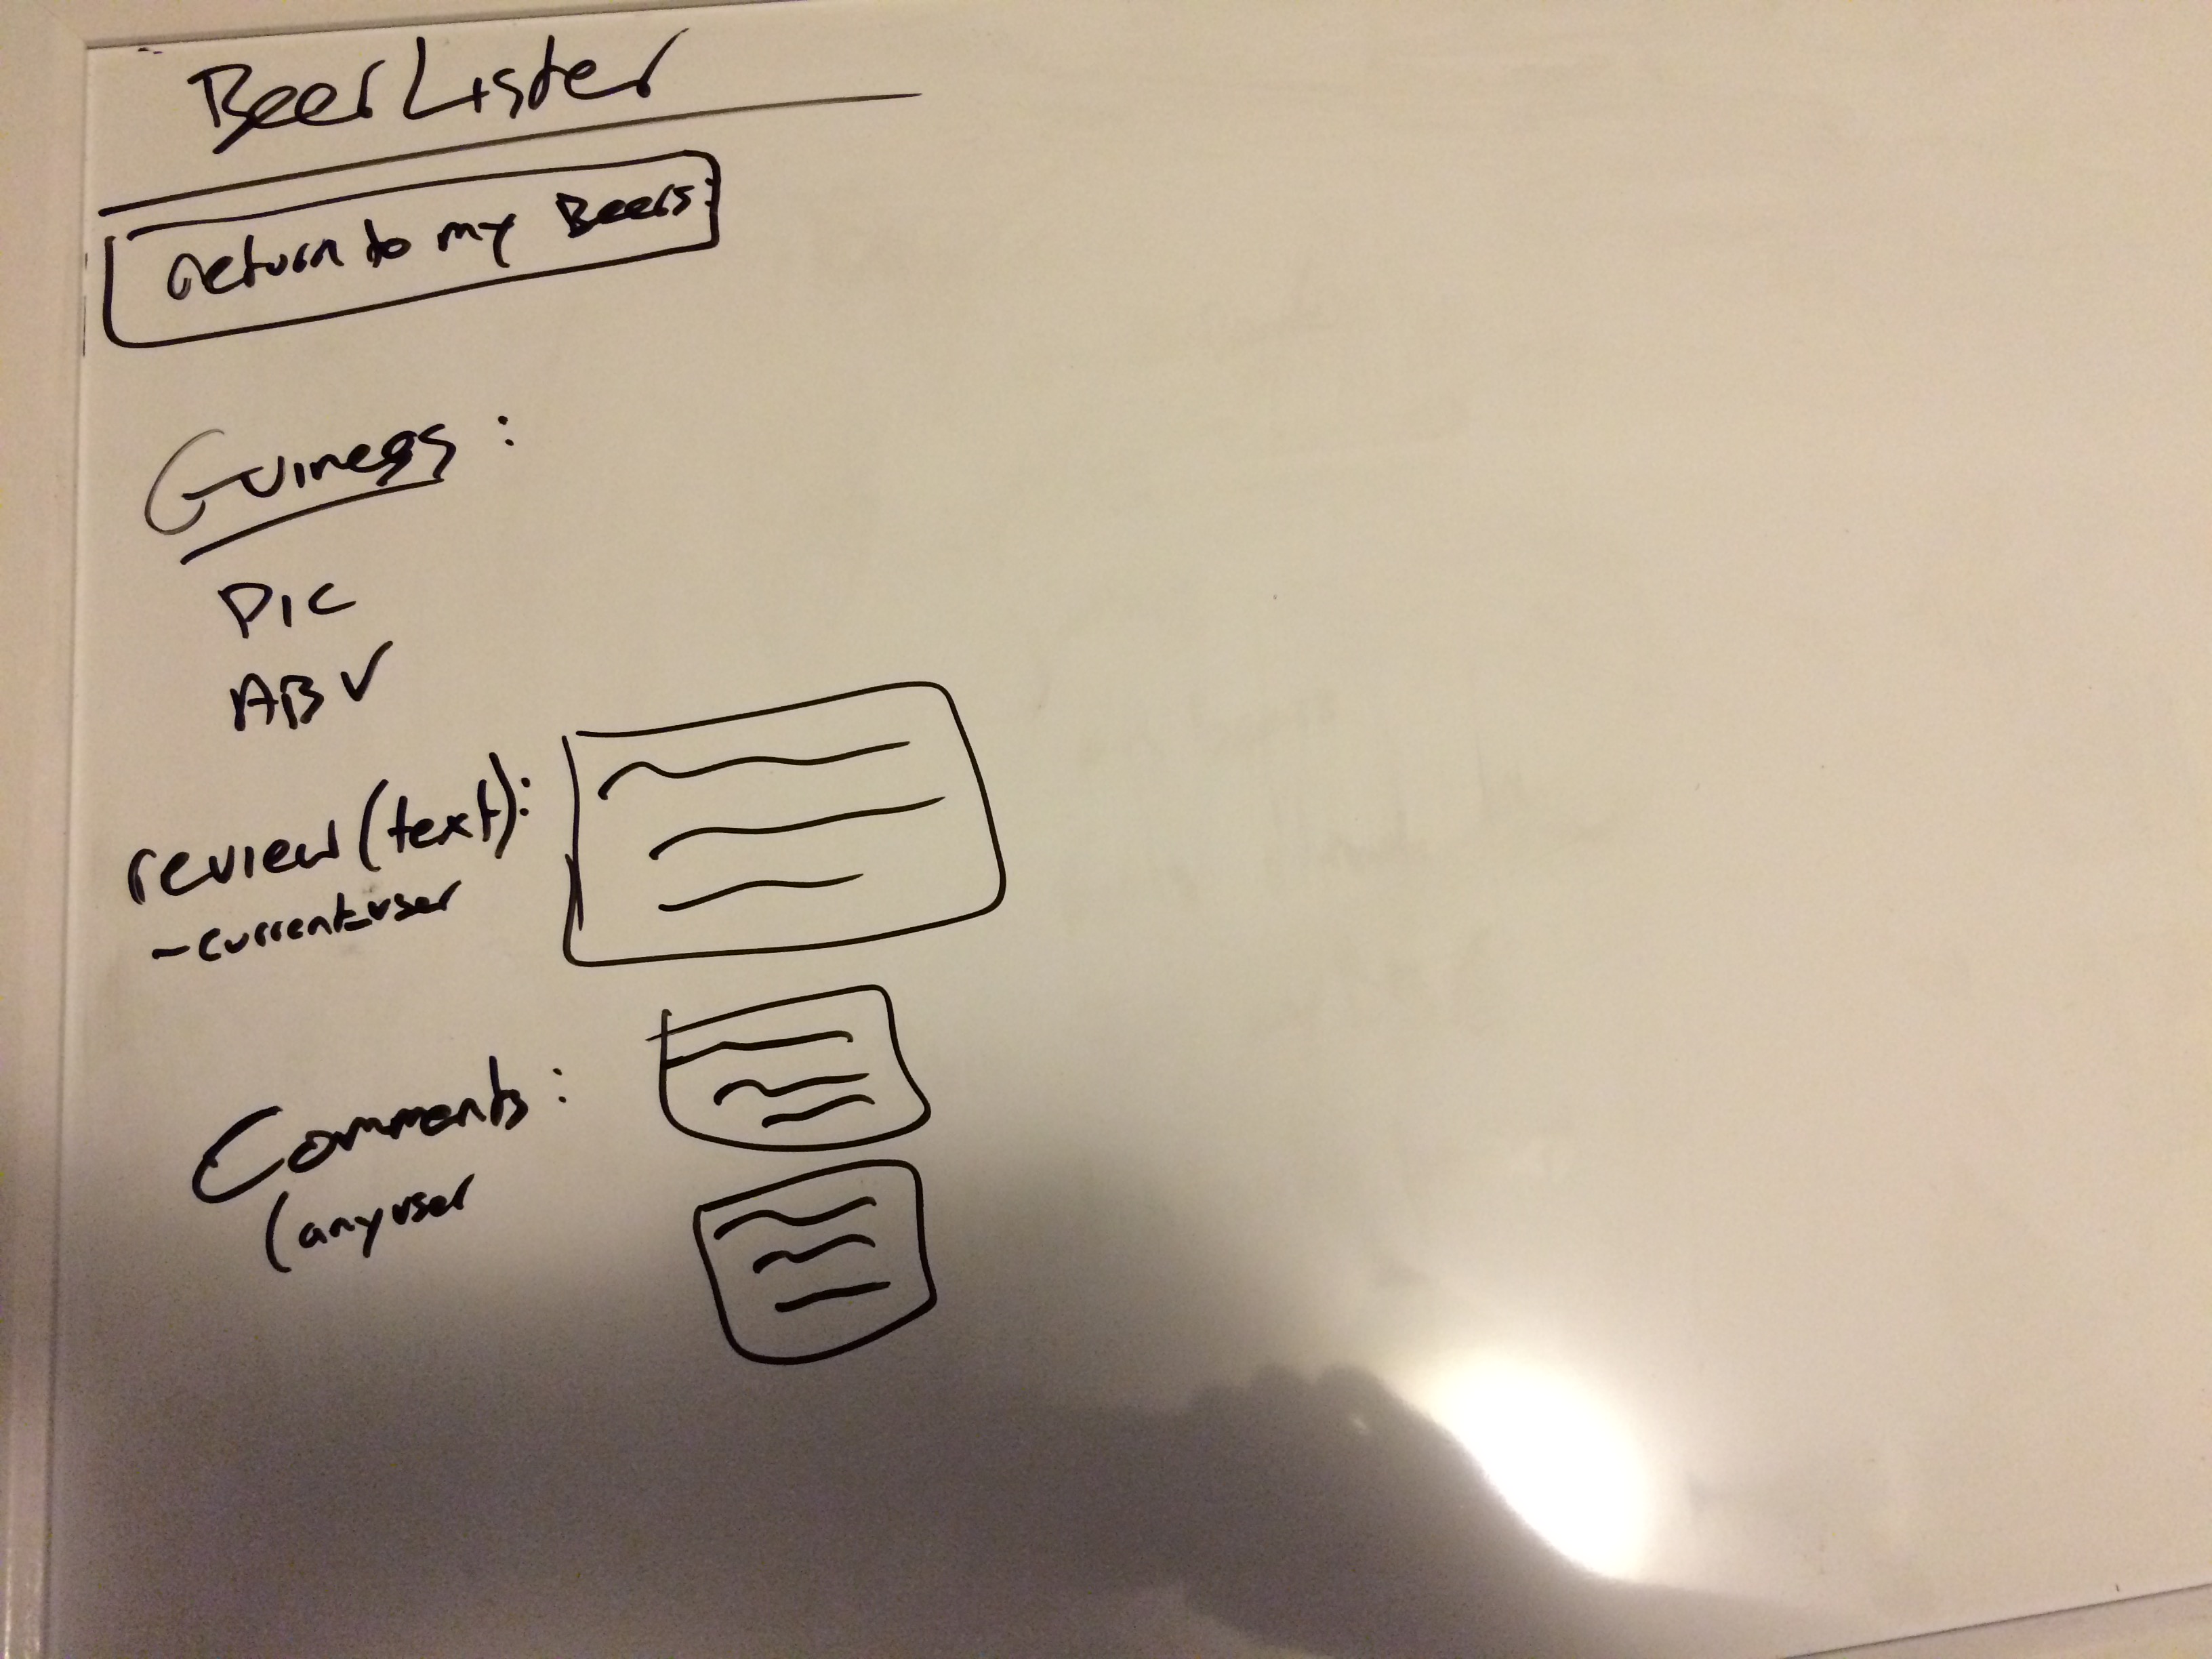 Beer Lister
Return to my Beers
Guiness:
PIC
ABV
review (text):
- current_user
Comments:
(any user